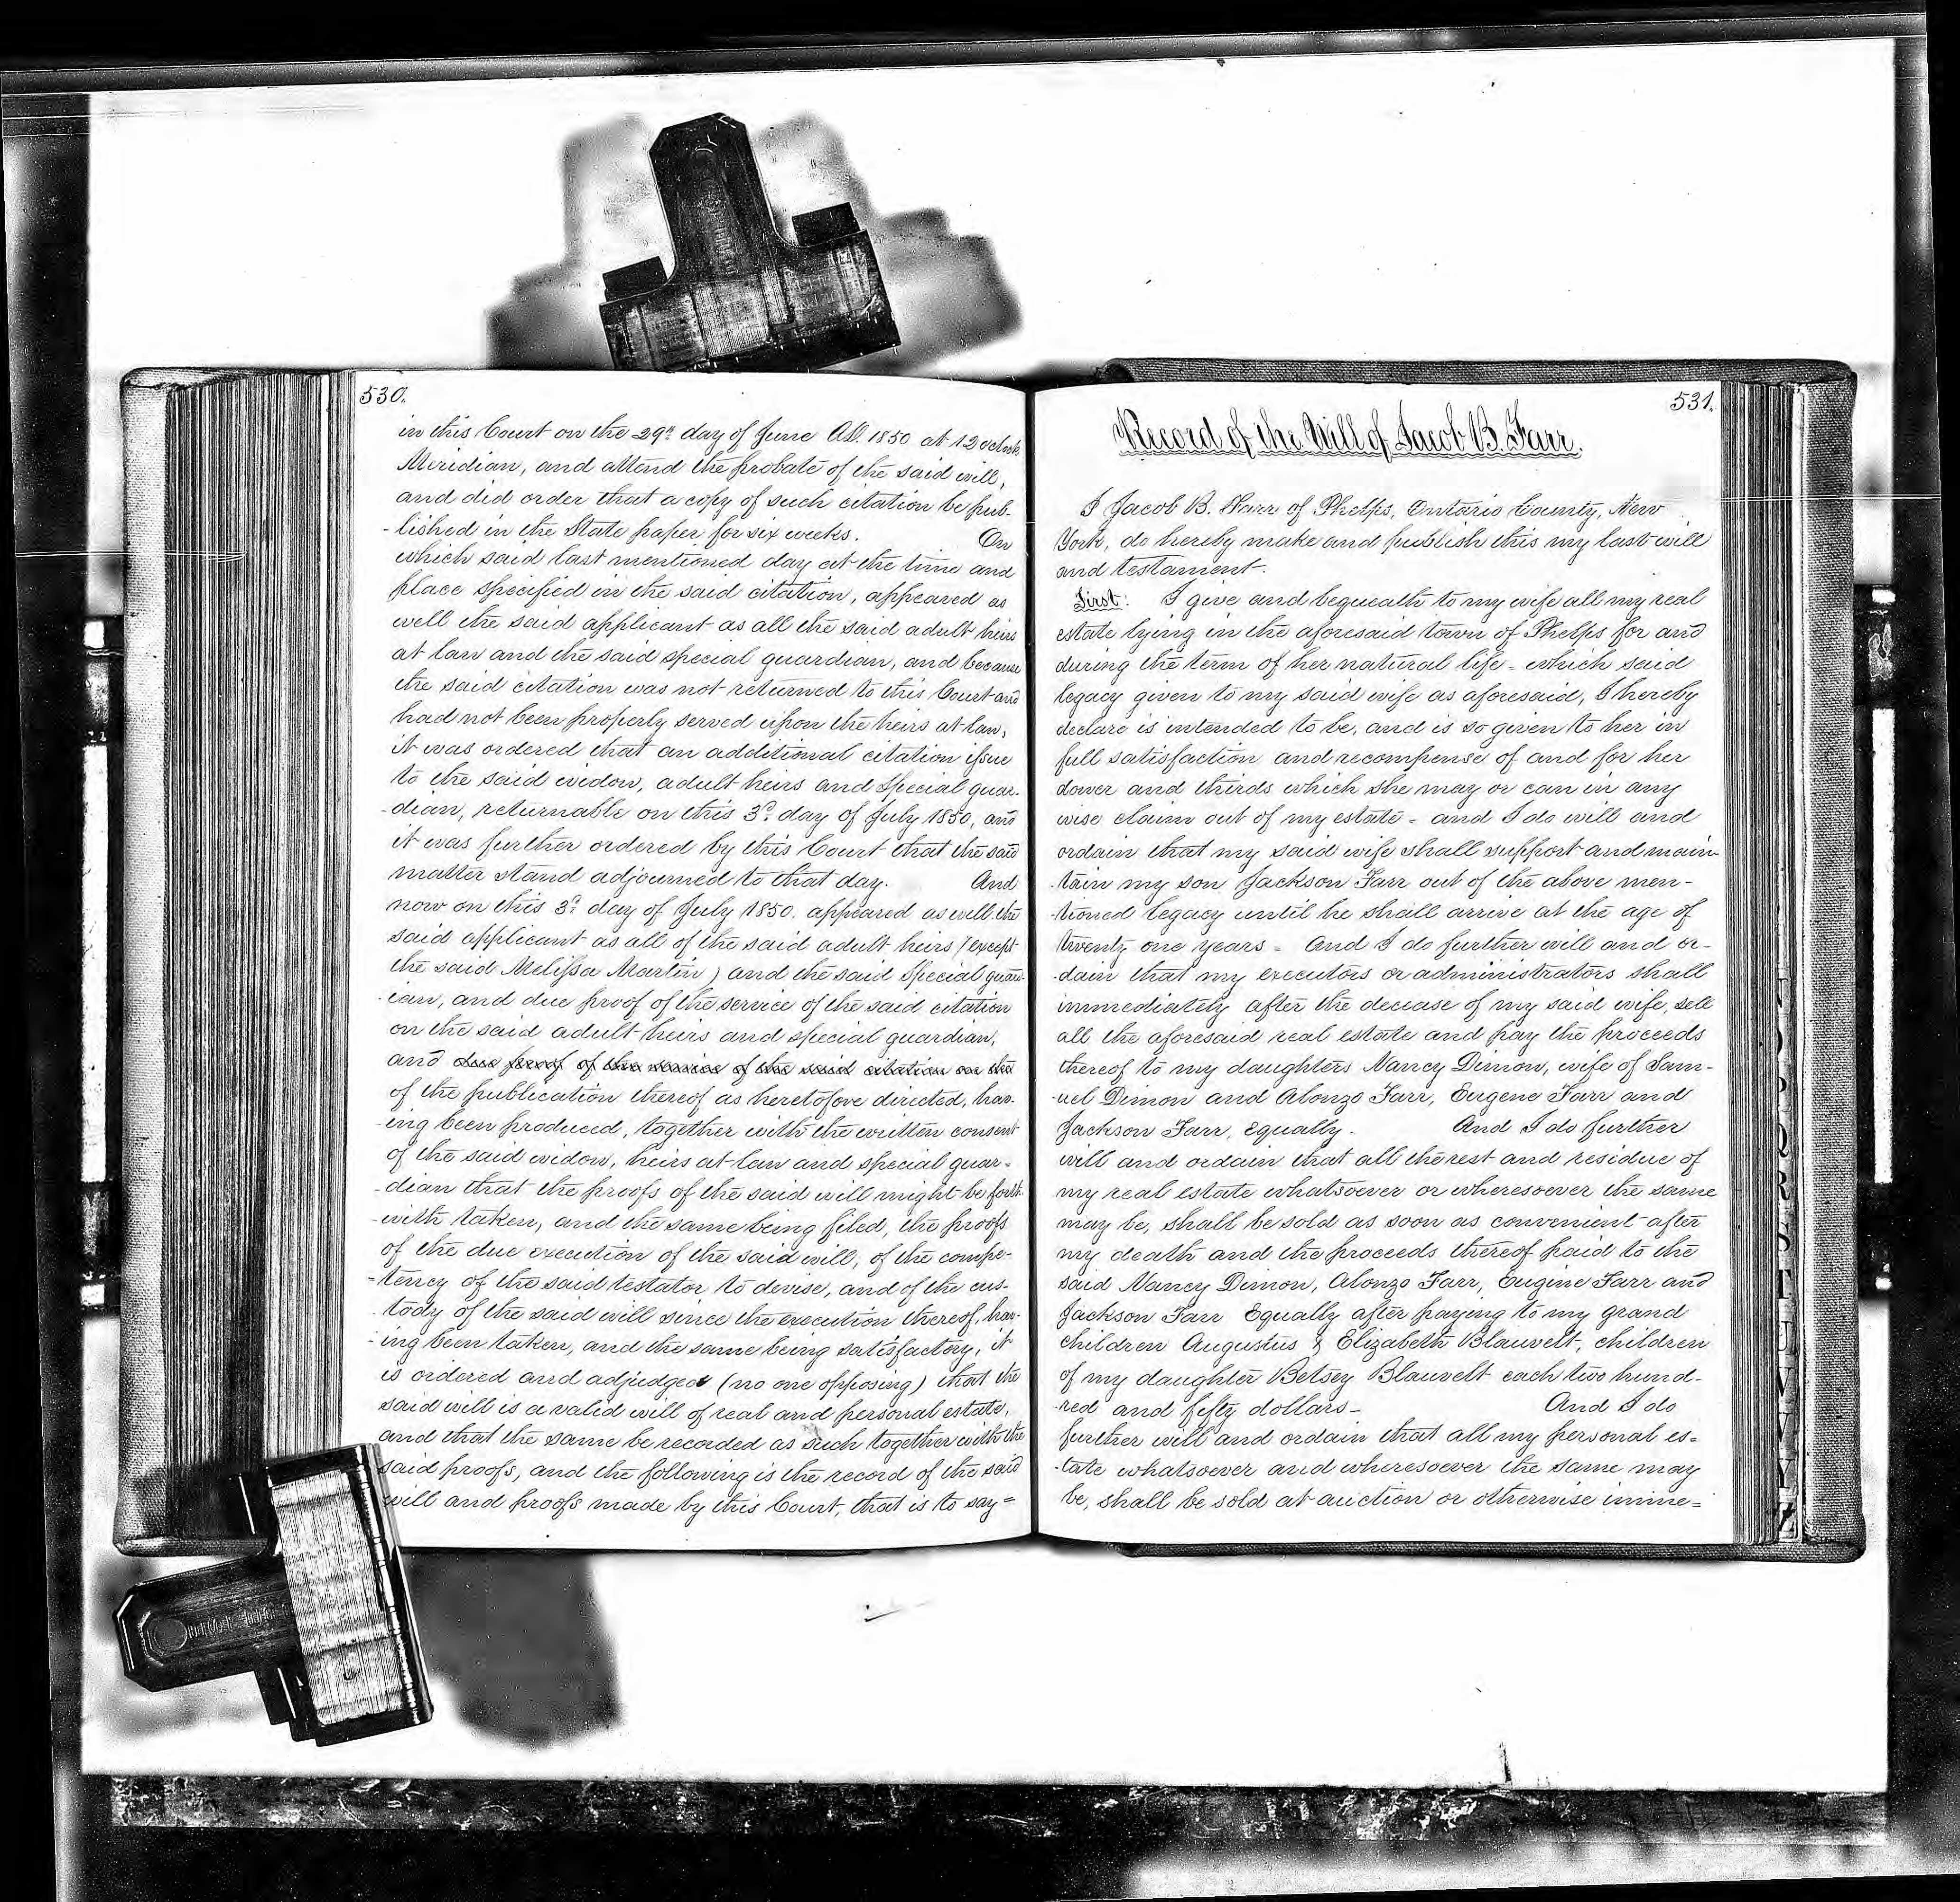 530.
in this Court on the 29th day of June A.D. 1850 at 12 oclock
Meridian, and attend the probate of the said will,
and did order that a copy of such citation be pub-
-lished in the State paper for six weeks. On
which said last mentioned day at the time and
place specified in the said citation, appeared as
well the said applicant as all the said adult heirs
at law and the said special guardian, and because
the said citation was not returned to this Court and
had not been properly served upon the heirs at law,
it was ordered that an additional citation issue
to the said widow, adult heirs and special guar-
-dian, returnable on this 3d day of July 1850, and
it was further ordered by this Court that the said
matter stand adjourned to that day. And
now on this 3d day of July 1850. appeared as well the
said applicant as all of the said adult heirs (except
the said Melissa Martin) and the said special guard-
-ian, and due proof of the service of the said citation
on the said adult heirs and special guardian,
and due proof of the service of the said citation on the
of the publication thereof as heretofore directed, hav-
-ing been produced, together with the written consent
of the said widow, heirs at law and special guar-
-dian that the proofs of the said will might be forth-
-with taken, and the same being filed, the proofs
of the due execution of the said will, of the compe-
-tency of the said testator to devise, and of the cus-
-tody of the said will since the execution thereof, hav-
-ing been taken, and the same being satisfactory, it
is ordered and adjudged (no one opposing) that the
said will is a valid will of real and personal estate,
and that the same be recorded as such together with the
said proofs, and the following is the record of the said
will and proofs made by this Court, that is to say=
531.
Record of the Will of Jacob B. Farr.
I Jacob B. Farr of Phelps, Ontario County, New
York, do hereby make and publish this my last will
and testament.
First: I give and bequeath to my wife all my real
estate lying in the aforesaid town of Phelps for and
during the term of her natural life - which said
legacy given to my said wife as aforesaid, I hereby
declare is intended to be, and is so given to her in
full satisfaction and recompense of and for her
dower and thirds which she may or can in any
wise claim out of my estate - and I do will and
ordain that my said wife shall support and main-
-tain my son Jackson Farr out of the above men-
-tioned legacy until he shall arrive at the age of
twenty one years - And I do further will and or-
-dain that my executors or administrators shall
immediately after the decease of my said wife, sell
all the aforesaid real estate and pay the proceeds
thereof to my daughters Nancy Dimon, wife of Sam-
-uel Dimon and Alonzo Farr, Eugene Farr and
Jackson Farr, equally - And I do further
will and ordain that all the rest and residue of
my real estate whatsoever or wheresoever the same
may be, shall be sold as soon as convenient after
my death and the proceeds thereof paid to the
said Nancy Dimon, Alonzo Farr, Eugine Farr and
Jackson Farr Equally after paying to my grand
children Augustus & Elizabeth Blauvelt, children
of my daughter Betsey Blauvelt each two hund-
-red and fifty dollars - And I do
further will and ordain that all my personal es=
-tate whatsoever and wheresoever the same may
be, shall be sold at auction or otherwise imme=